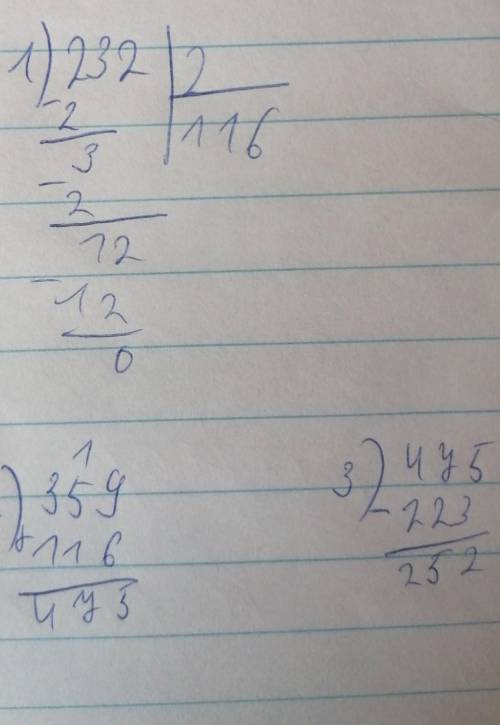 1) 232 | 2
- 2 116
3
- 2
12
- 12
0
1
) 359
+ 116
475
3) 475
- 223
252